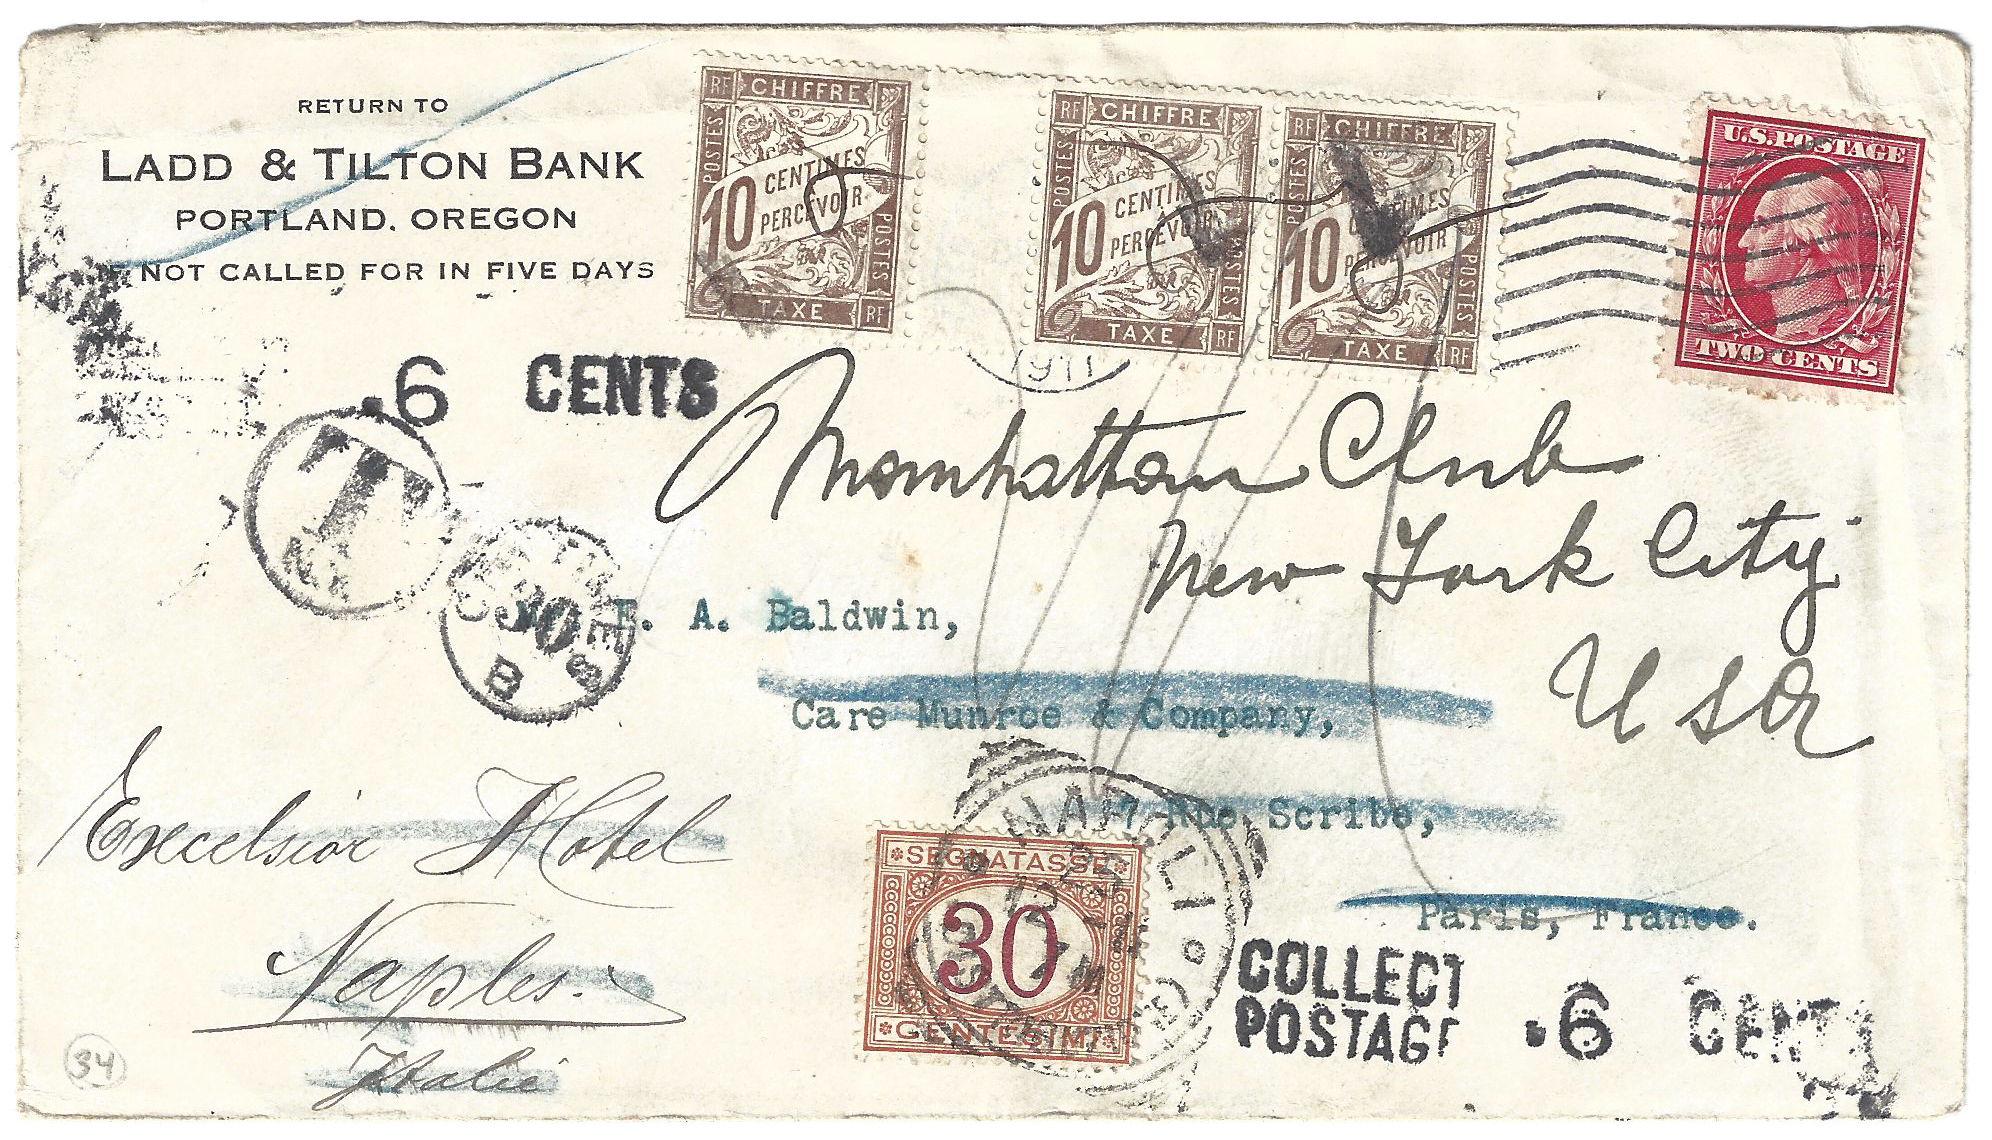 RETURN TO
LADD & TILTON BANK
PORTLAND, OREGON
NOT CALLED FOR IN FIVE DAYS
RF CHIFFRE
POSTES
10 CENTIMES
À PERCEVOIR
POSTES
TAXE RF
RF CHIFFRE
POSTES
10 CENTIMES
À PERCEVOIR
POSTES
TAXE RF
RF CHIFFRE
POSTES
10 CENTIMES
PERCEVOIR
POSTES
TAXE RF
U.S. POSTAGE
TWO CENTS
1911
.6 CENTS
T
N.Y.
CENTIMES
30
B
S
Manhattan Club
New York City
USA
Mr. E. A. Baldwin,
Care Munroe & Company,
7 Rue Scribe,
Paris, France.
Excelsior Hotel
Naples.
Italie
NAPOLI
SEGNATASSE
30
CENTESIMI
COLLECT
POSTAGE .6 CENTS
34